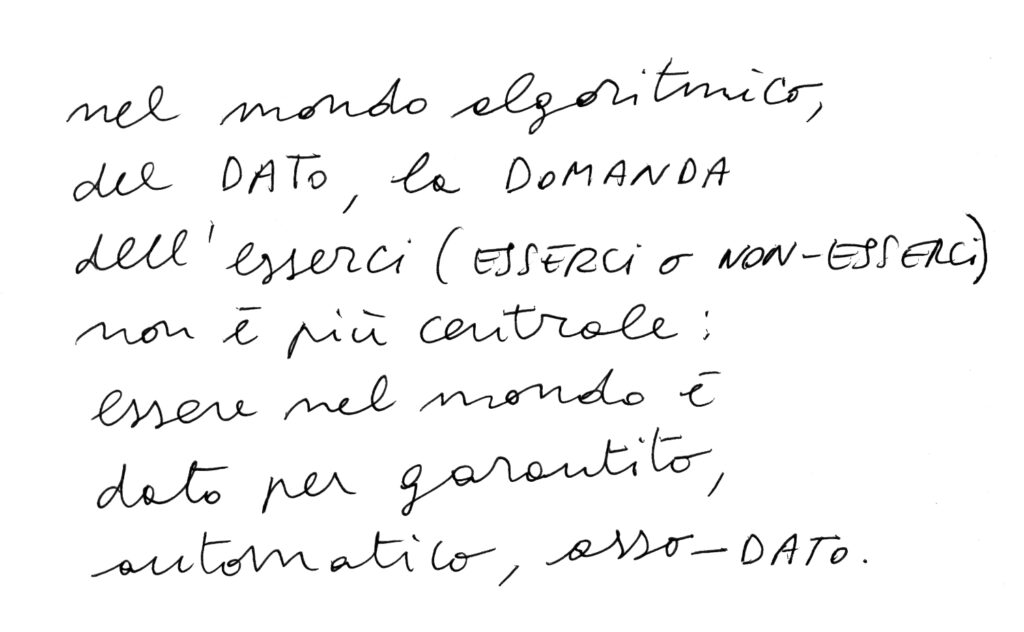 nel mondo algoritmico,
del DATO, la DOMANDA
dell'esserci (ESSERCi o NON-ESSERCi)
non è più centrale:
essere nel mondo è
dato per garantito,
automatico, asso-DATO.